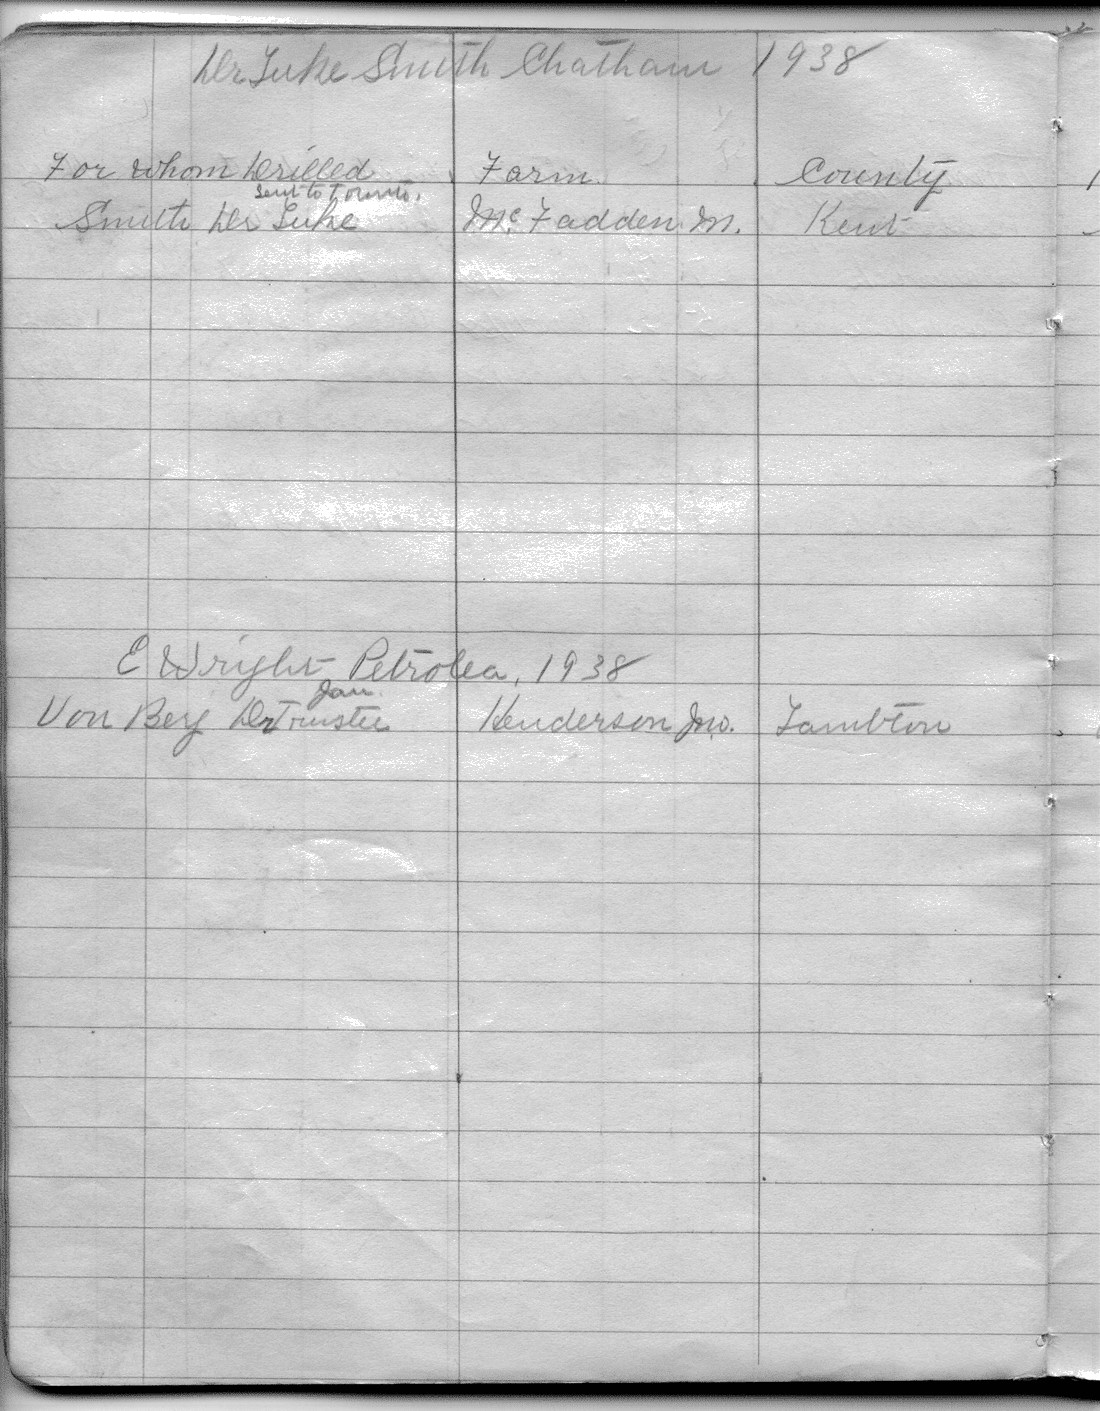 Dr Luke Smith Chatham 1938
For Whom Drilled Farm. County
sent to Toronto.
Smith Dr Luke Mc Fadden M. Kent
E Wright Petrolea, 1938
Jan.
Von Berg Dr Trustee Henderson Jno. Lambton